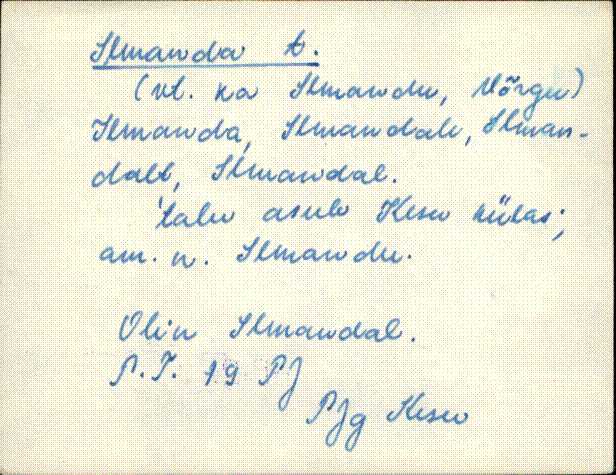 Ilmanda t.
(vt. ka Ilmandu, Võrgu)
Ilmanda, Ilmandale, Ilman-
dalt, Ilmandal.
Talu asub Kesu külas;
am. n. Ilmandu.
Olin Ilmandal.
P.T. 19 PJ
PJg Kesu